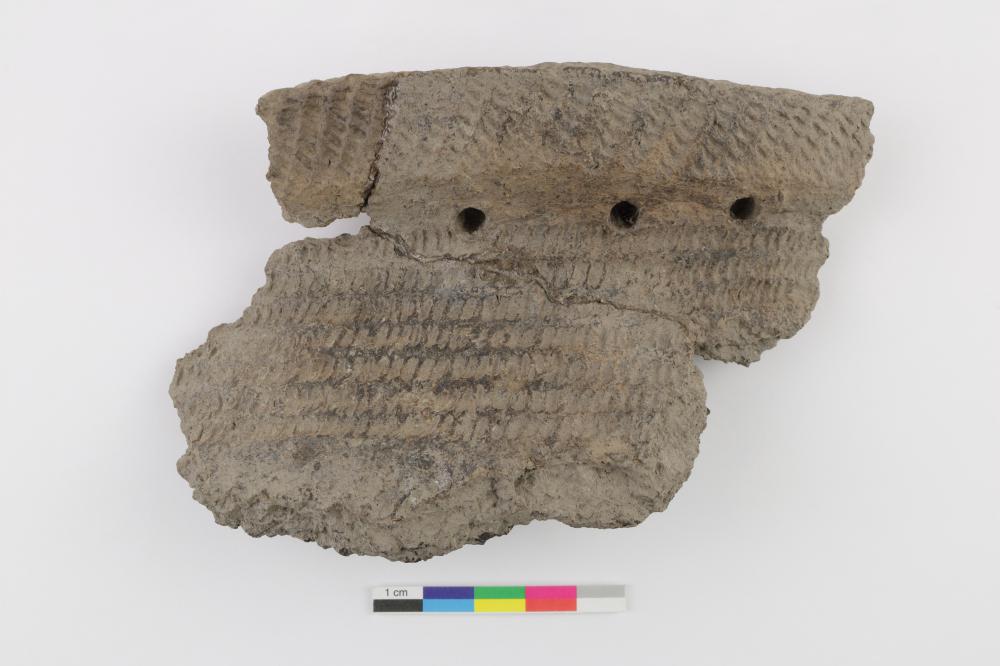 1 cm